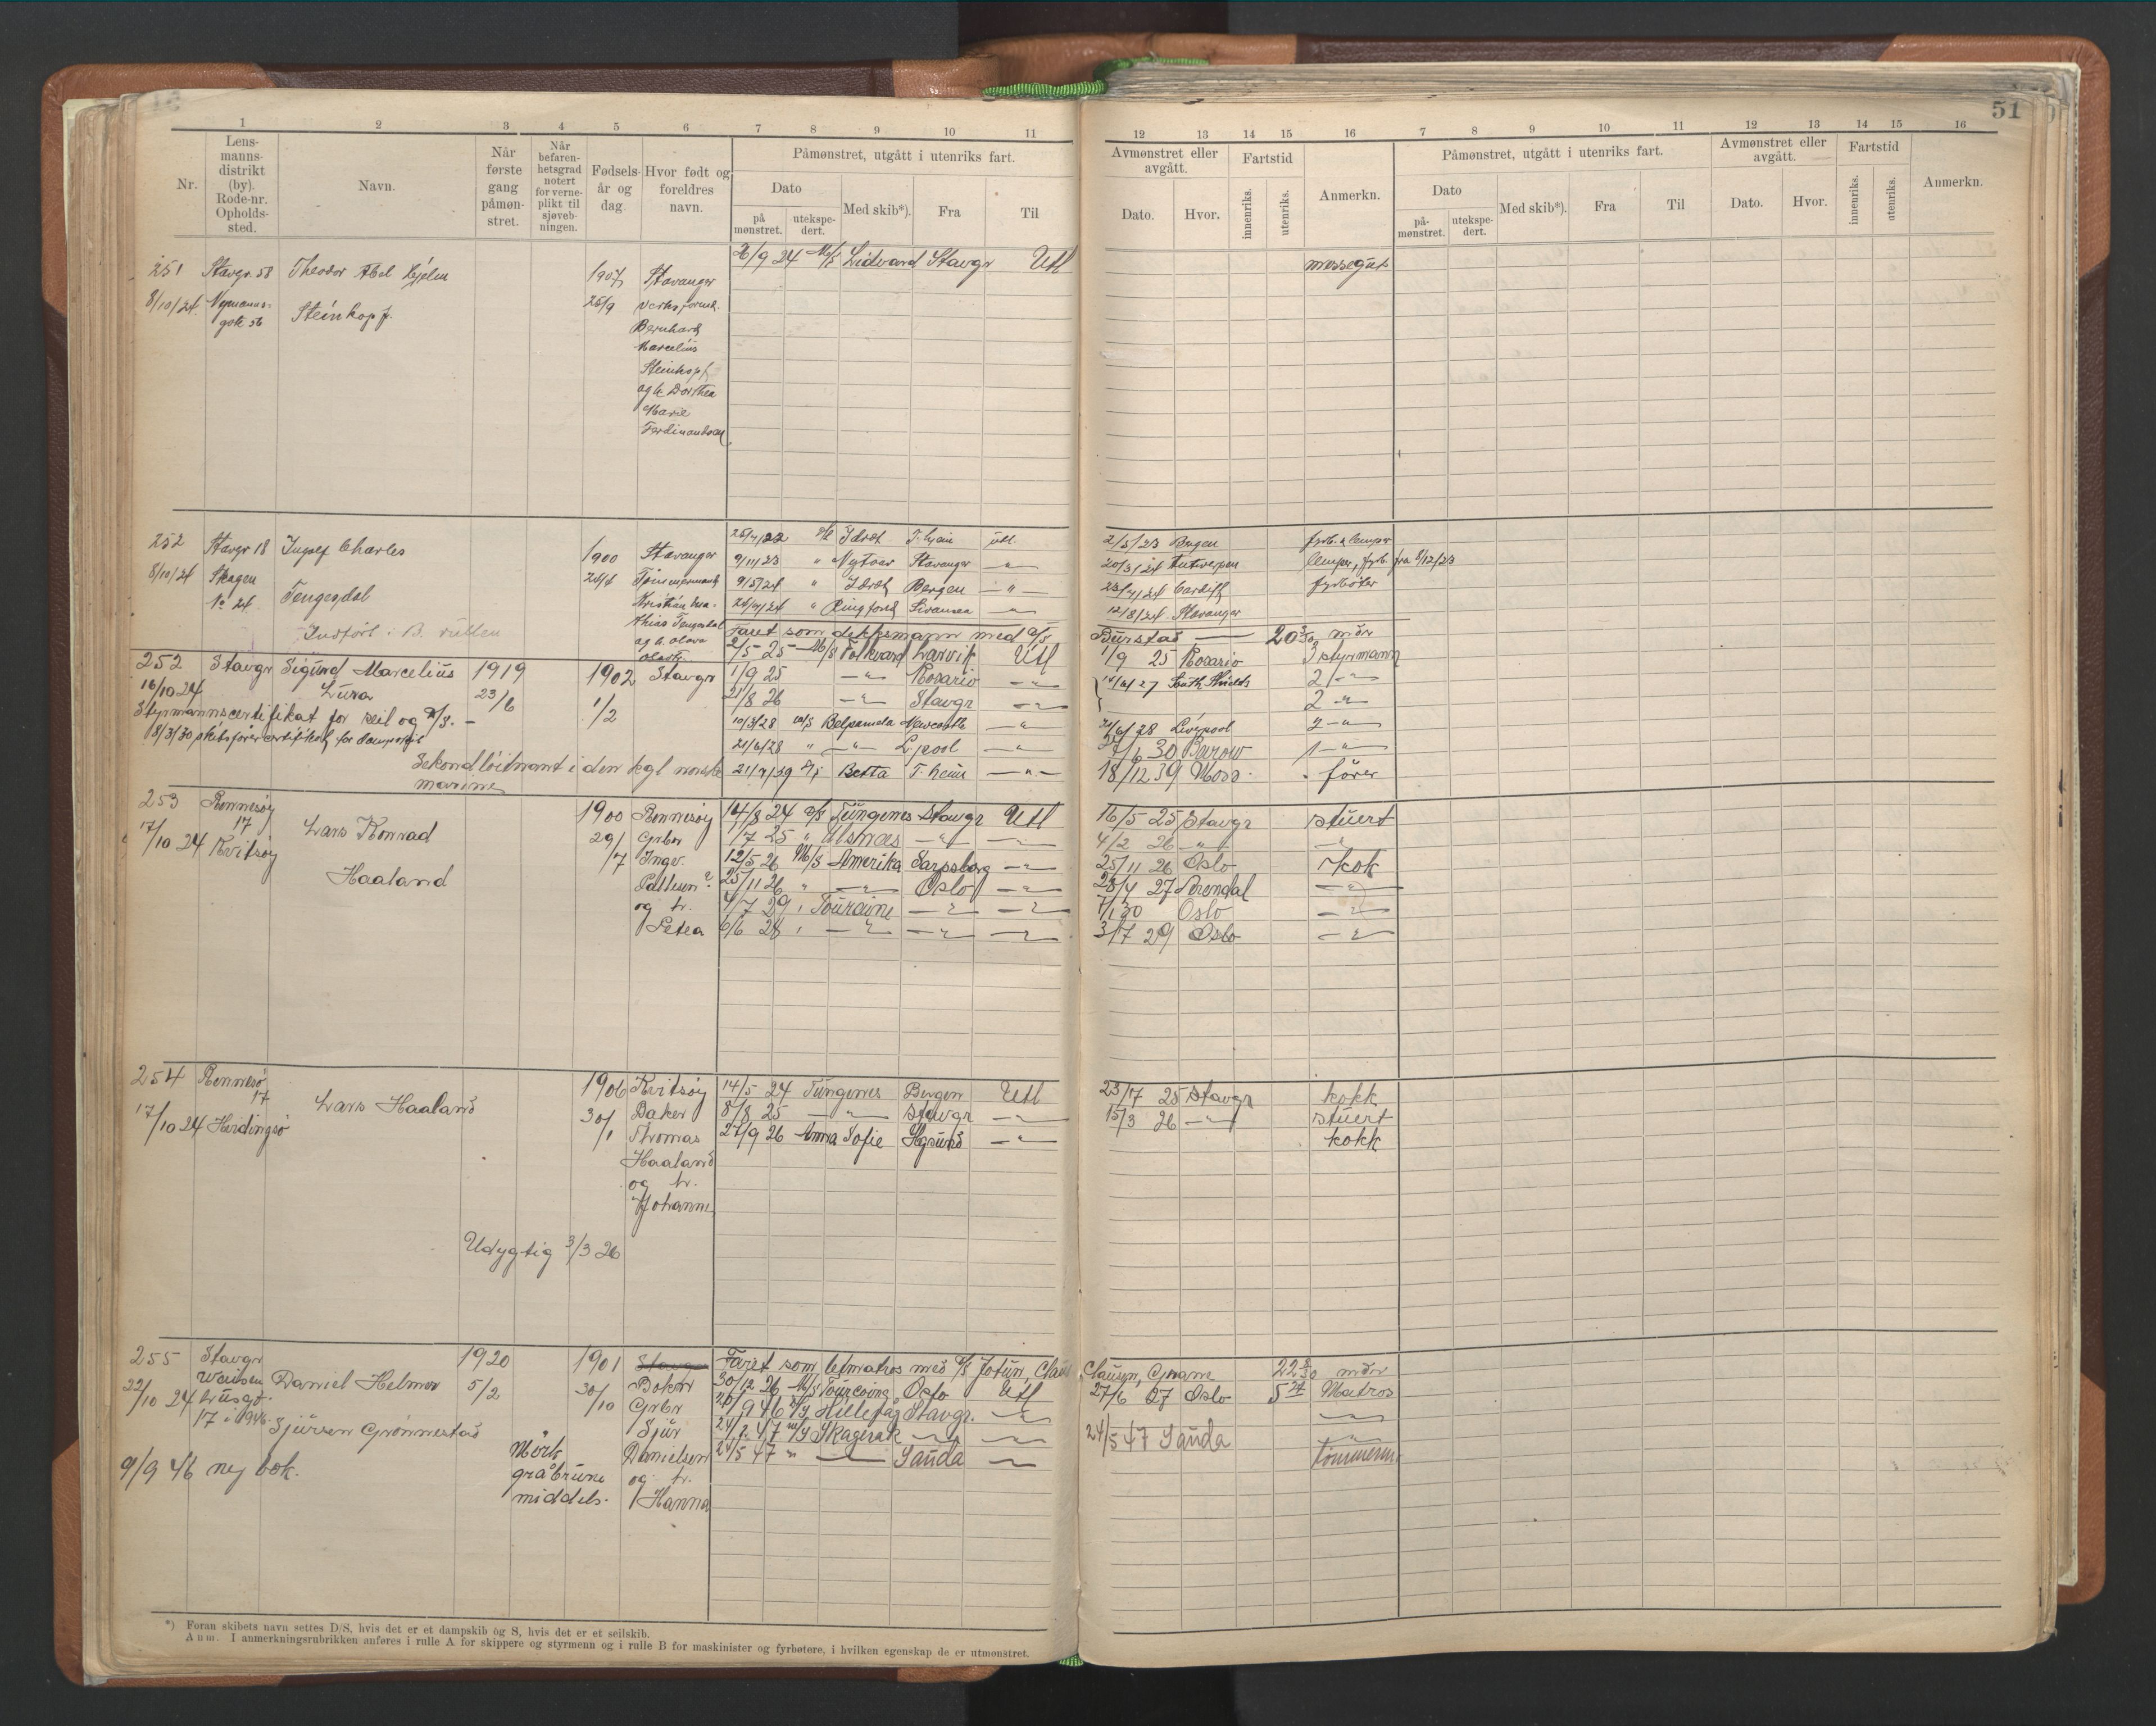 51
1 2 3 4 5 6 7 8 9 10 11
12 13 14 15 16 7 8 9 10 11 12 13 14 15 16
Nr.
Lens-
manns-
distrikt
(by).
Rode-nr.
Opholds-
sted.
Navn.
Når
første
gang
påmøn-
stret.
Når
befaren-
hetsgrad
notert
for verne-
plikt til
sjøveb-
ningen.
Fødsels-
år og
dag.
Hvor født og
foreldres
navn.
Påmønstret, utgått i utenriks fart.
Dato
på
mønstret.
utekspe-
dert.
Med skib*).
Fra
Til
Avmønstret eller
avgått.
Dato.
Hvor.
Fartstid
innenriks.
utenriks.
Anmerkn.
Påmønstret, utgått i utenriks fart.
Dato
på-
mønstret.
utekspe-
dert.
Med skib*).
Fra
Til
Avmønstret eller
avgått.
Dato.
Hvor.
Fartstid
innenriks.
utenriks.
Anmerkn.
251 Stavgr. 58 Theodor Abel
8/10/24.
gate 56 Steinkopf.
1907
25/9
Stavanger
Bernhard
Marcelius
Steinkopf
og h. Dorthea
Marie
Ferdinandsen
/9 24 M/S Lidvard Stavgr Utl
messegut
252 Stavgr 18 Charles
8/10/24 Skagen
No 24. Tengesdal
Indført i B. rullen
1900
Stavanger
Kristian
Tengesdal
og h. Olava
25/4/22 Idræt utl
9/11/23 " Nytaar Stavanger -"-
9/5/24 " Idræt Bergen -"-
" Ringfond Swansea -"-
Faret som dekksmann med D/S
2/5/23 Bergen fyrb. & lemper
20/3/24 Antwerpen lemper, fyrb. fra 8/12/23
Cardiff fyrbøter
12/8/24 Stavanger
Burstad - 20 mdr
252 Stavgr Sigund Marcelius 1919 1902 Stavgr
16/10 24 Lura 23/6 1/2
Styrmannscertifikat for seil og D/S. -
8/3/30 skibsførercertifikat for dampskib
Sekondløitnant i den kgl norske
marine
2/5 25 M/S Folkvard Larvik Utl
1/9 25 -"- Rosario -"-
21/8 26 -"- Stavgr -"-
10/3/28 m/s Belpamela Newcastle -"-
21/6/28 " -"- L.pool -"-
21/7/39 D/S Betta T.heim -"-
1/9 25 Rosario 3 styrmann
27 South Shields 2 -"-
2 -"-
/6/28 Liverpool 2 -"-
30 Barow 1 -"-
18/12 39 Moss. fører
253 Rennesøy
17
17/10 24 Kvitsøy
Lars Konrad
Haaland
1900
29/
/7
Rennesøy
Grbr
Ingv.
og h.
Petea
14/8 24 D/S Tungenes Stavgr Utl
1/7 25 " Ulstnæs -"- -"-
12/5 26 M/S Amerika Sarpsborg -"-
25/11 26 " -"- Oslo -"-
4/7 29 " Touraine -"- -"-
6/6 28 " -"- -"- -"-
16/5 25 Stavgr stuert
4/2 26 -"- -"-
25/11 26 Oslo Kok
27 Arendal -"-
7/1 30 Oslo -"-
3/7 29 Oslo -"-
254 Rennesø
17
17/10 24 Herdingsø
Lars Haaland
1906
30/
/1
Kvitsøy
Baker
Thomas
Haaland
og h.
Johanne
Udygtig 3/3 26
14/5 24 Tungenes Bergen Utl
8/8 25 -"- Stavgr -"-
27/9 26 Anna Sofie Hgsund -"-
23/17 25 Stavgr kokk
15/3 26 -"- stuert
kokk
255 Stavgr
22/10 24
17 " 1946
Daniel Helmer
Sjursen Grønnestad
1920
5/2
1901
30/
/10
Stavgr
Bokn
Grbr
Sjur
Danielsen
og h.
Hanna
9/9 46 ny bok.
Mørk
gråbrune
middels.
Faret som letmatros med D/S Jotun, Claus
30/12 26 M/S Tourcoing Oslo Utl
/9 46 Hillefåg Stavgr. -"-
47 Skagerak -"- -"-
24/5 47 " -"- Sauda -"-
Clausen, Gmane 22 mdr
27/6 27 Oslo 5 Matros
-"-
24/5 47 Sauda -"-
Tømmerm.
*) Foran skibets navn settes D/S, hvis det er et dampskib og S, hvis det er et seilskib.
Anm. I anmerkningsrubrikken anføres i rulle A for skippere og styrmenn og i rulle B for maskinister og fyrbøtere, i hvilken egenskap de er utmonstret.